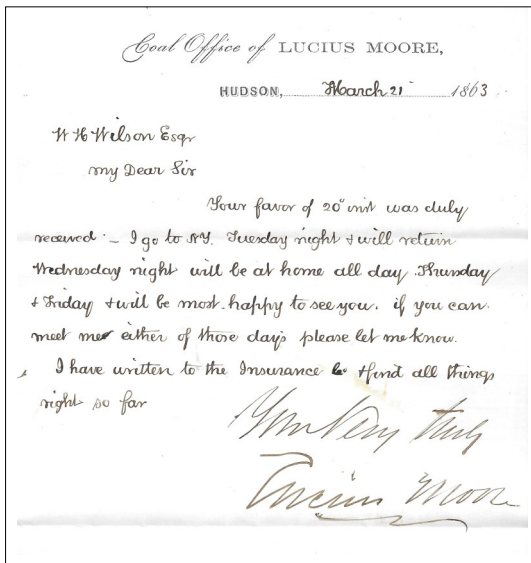 Coal Office of LUCIUS MOORE,
HUDSON, March 21 1863
W H Wilson Esqr
My Dear Sir
Your favor of 20" inst was duly
received. – I go to N.Y. Tuesday night & will return
Wednesday night will be at home all day Thursday
& Friday & will be most happy to see you. if you can
meet me either of those days please let me know.
I have written to the Insurance Co & find all things
right so far
Yours Very truly
Lucius Moore